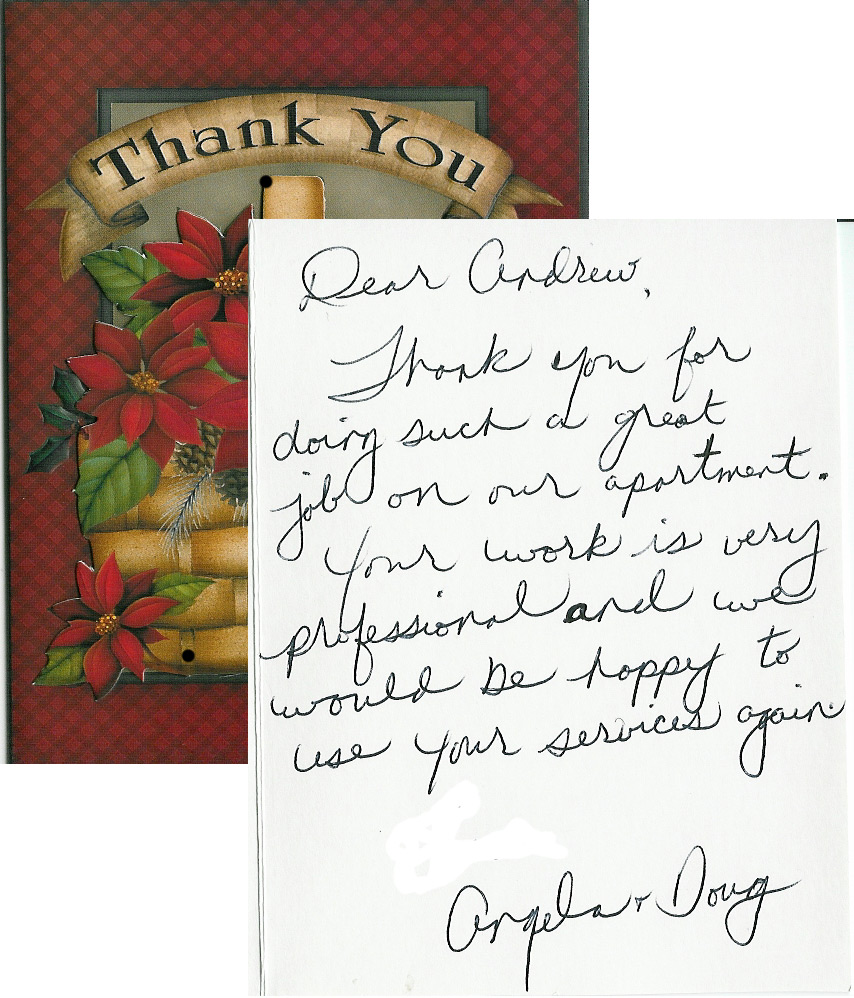 Thank You
Dear Andrew,
Thank you for
doing such a great
job on our apartment.
Your work is very
professional and we
would be happy to
use your services again.
Angela + Doug